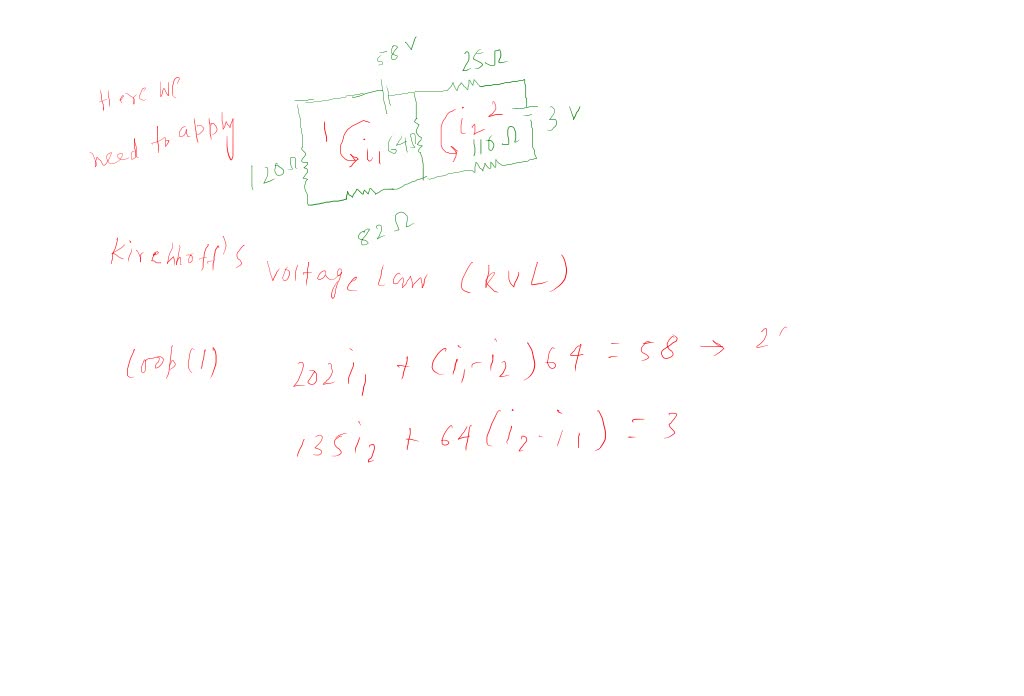 58 V
25Ω
Here we
need to apply
1 i1 64Ω
i2 2
3 V
120Ω
110 Ω
82 Ω
Kirchhoff's
voltage Law (KVL)
Loop (1) 202i1 + (i1-i2)64 = 58 → 2
135i2 + 64(i2-i1) = 3